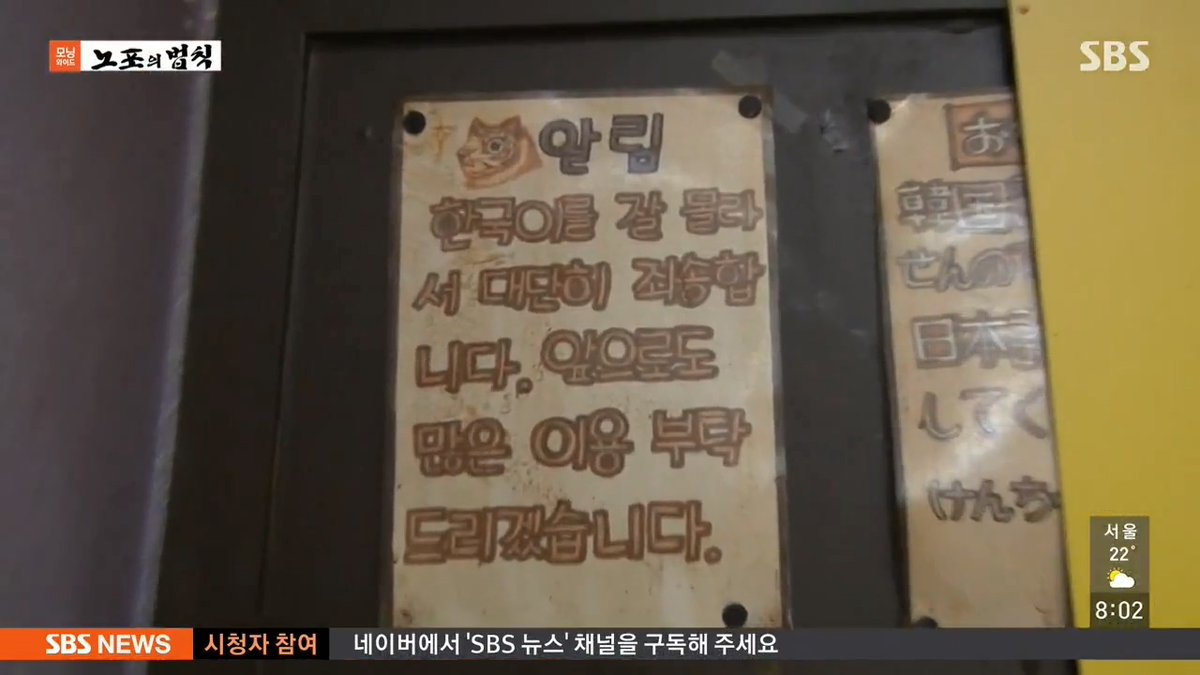 모닝와이드 노포의 법칙
SBS
알림
한국이를 갈 믈라
서 대단히 죄송합
니다. 앞으로도
많은 이용 부탁
드리겠습니다.
お
韓国
せんの
日本
してく
けんち
서울
22°
8:02
SBS NEWS 시청자 참여 네이버에서 'SBS 뉴스' 채널을 구독해 주세요